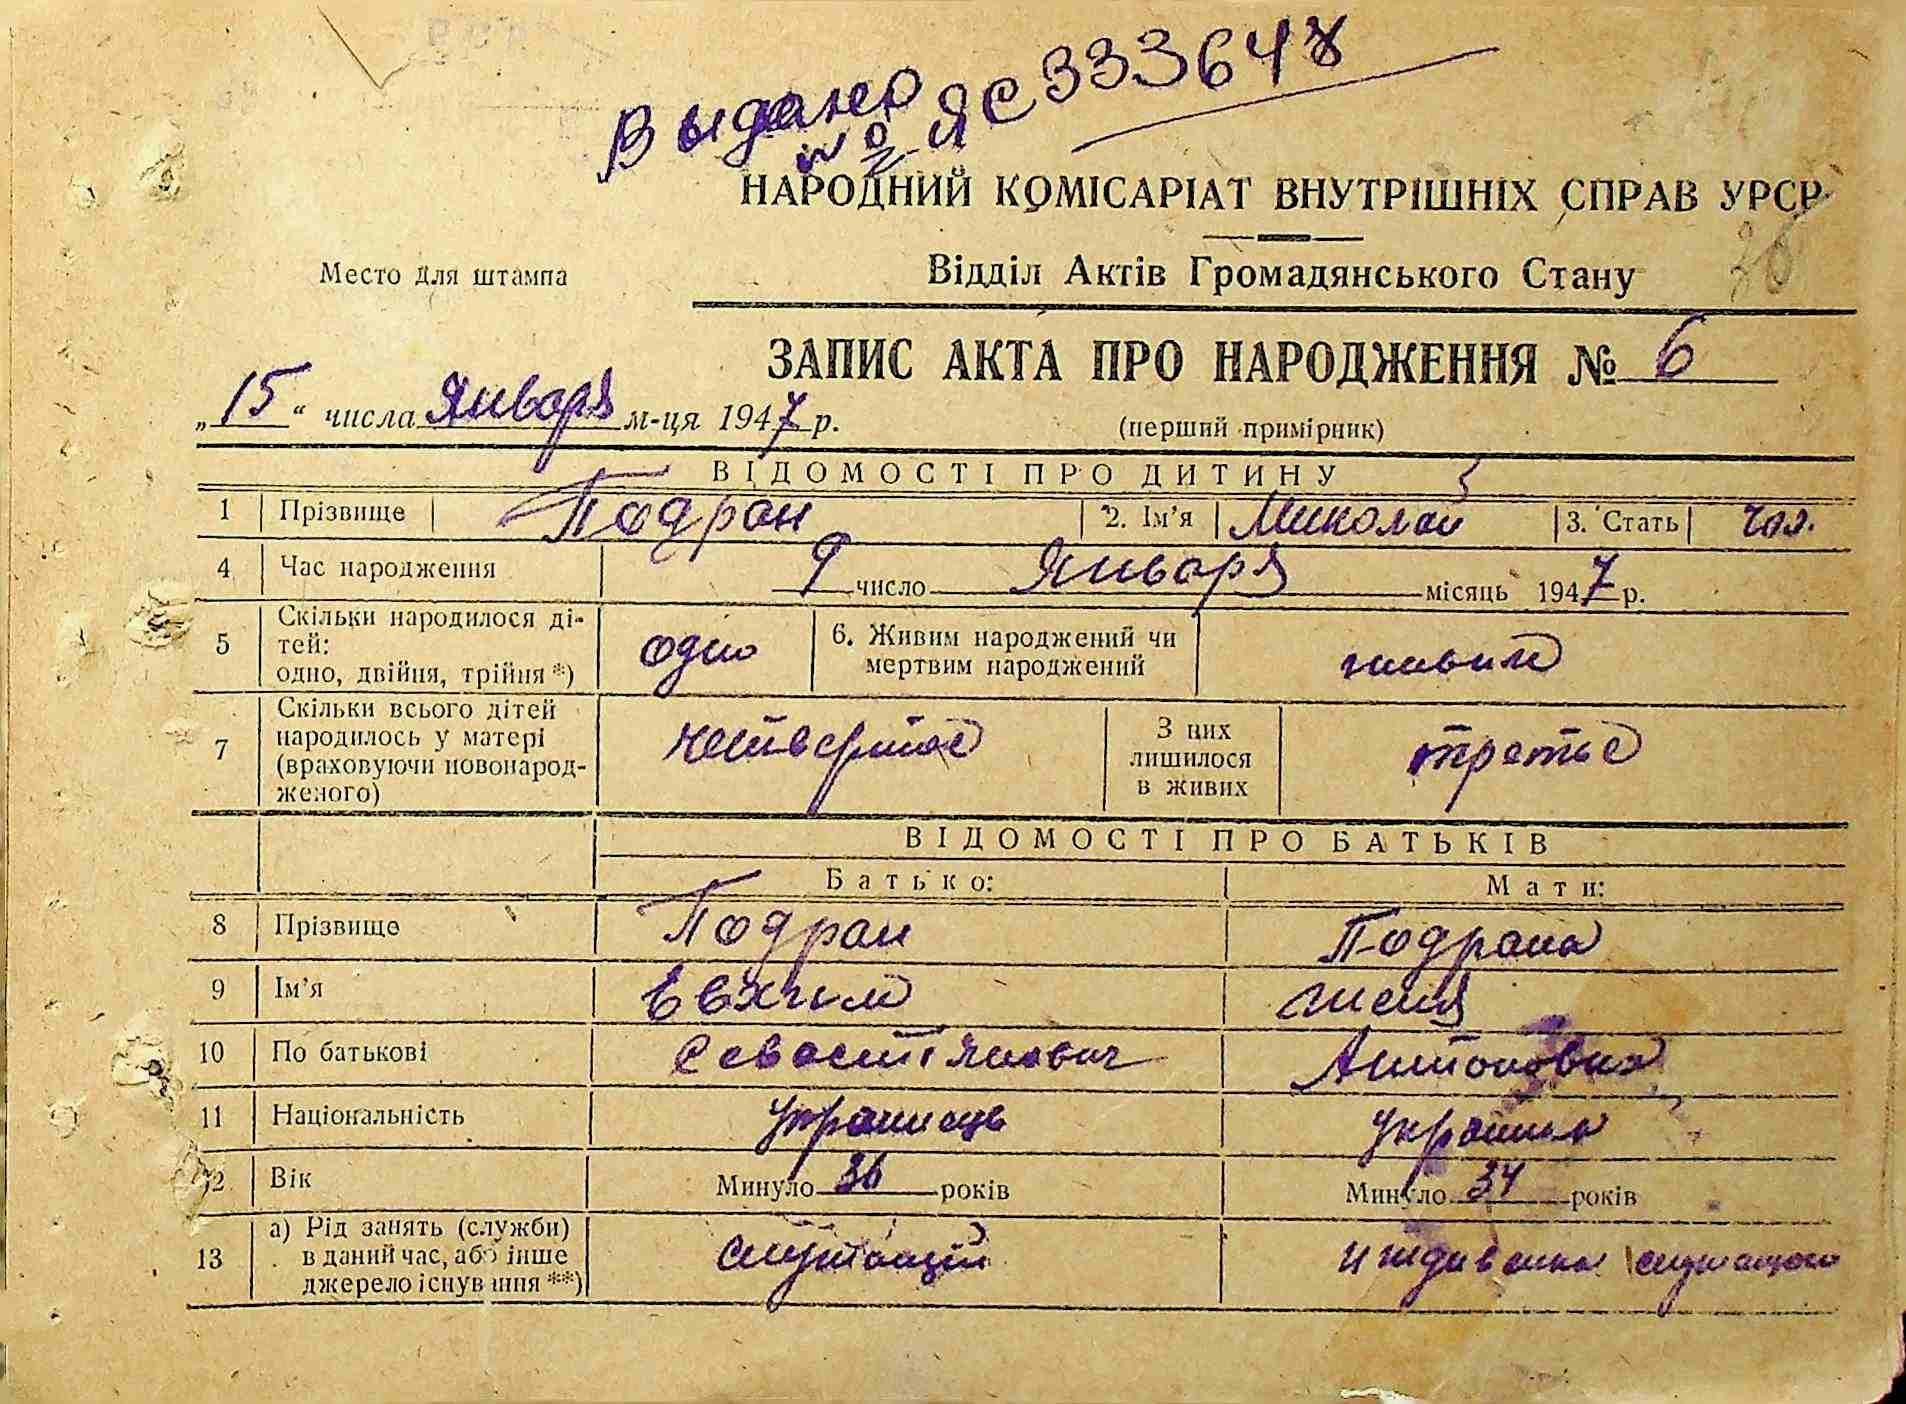 Выдано
№ ЯС 333648
НАРОДНИЙ КОМІСАРІАТ ВНУТРІШНІХ СПРАВ УРСР
Место для штампа
Відділ Актів Громадянського Стану
ЗАПИС АКТА ПРО НАРОДЖЕННЯ № 6
„15“ числа Января м-ця 1947 р.
(перший примірник)
ВІДОМОСТІ ПРО ДИТИНУ
1 Прізвище Подран 2. Ім'я Миколай 3. Стать чол.
4 Час народження 9 число Января місяць 1947 р.
5 Скільки народилося ді-
тей:
одно, двійня, трійня *) одно 6. Живим народжений чи
мертвим народжений живим
7 Скільки всього дітей
народилось у матері
(враховуючи новонарод-
женого) четвертое З них
лишилося
в живих третье
ВІДОМОСТІ ПРО БАТЬКІВ
Батько: Мати:
8 Прізвище Подран Подрана
9 Ім'я Евхим
10 По батькові Севастіянович Антоновна
11 Національність Українець Українка
12 Вік Минуло 36 років Минуло 34 років
13 а) Рід занять (служби)
в даний час, або інше
джерело існування **) служащій иждивенка служащого